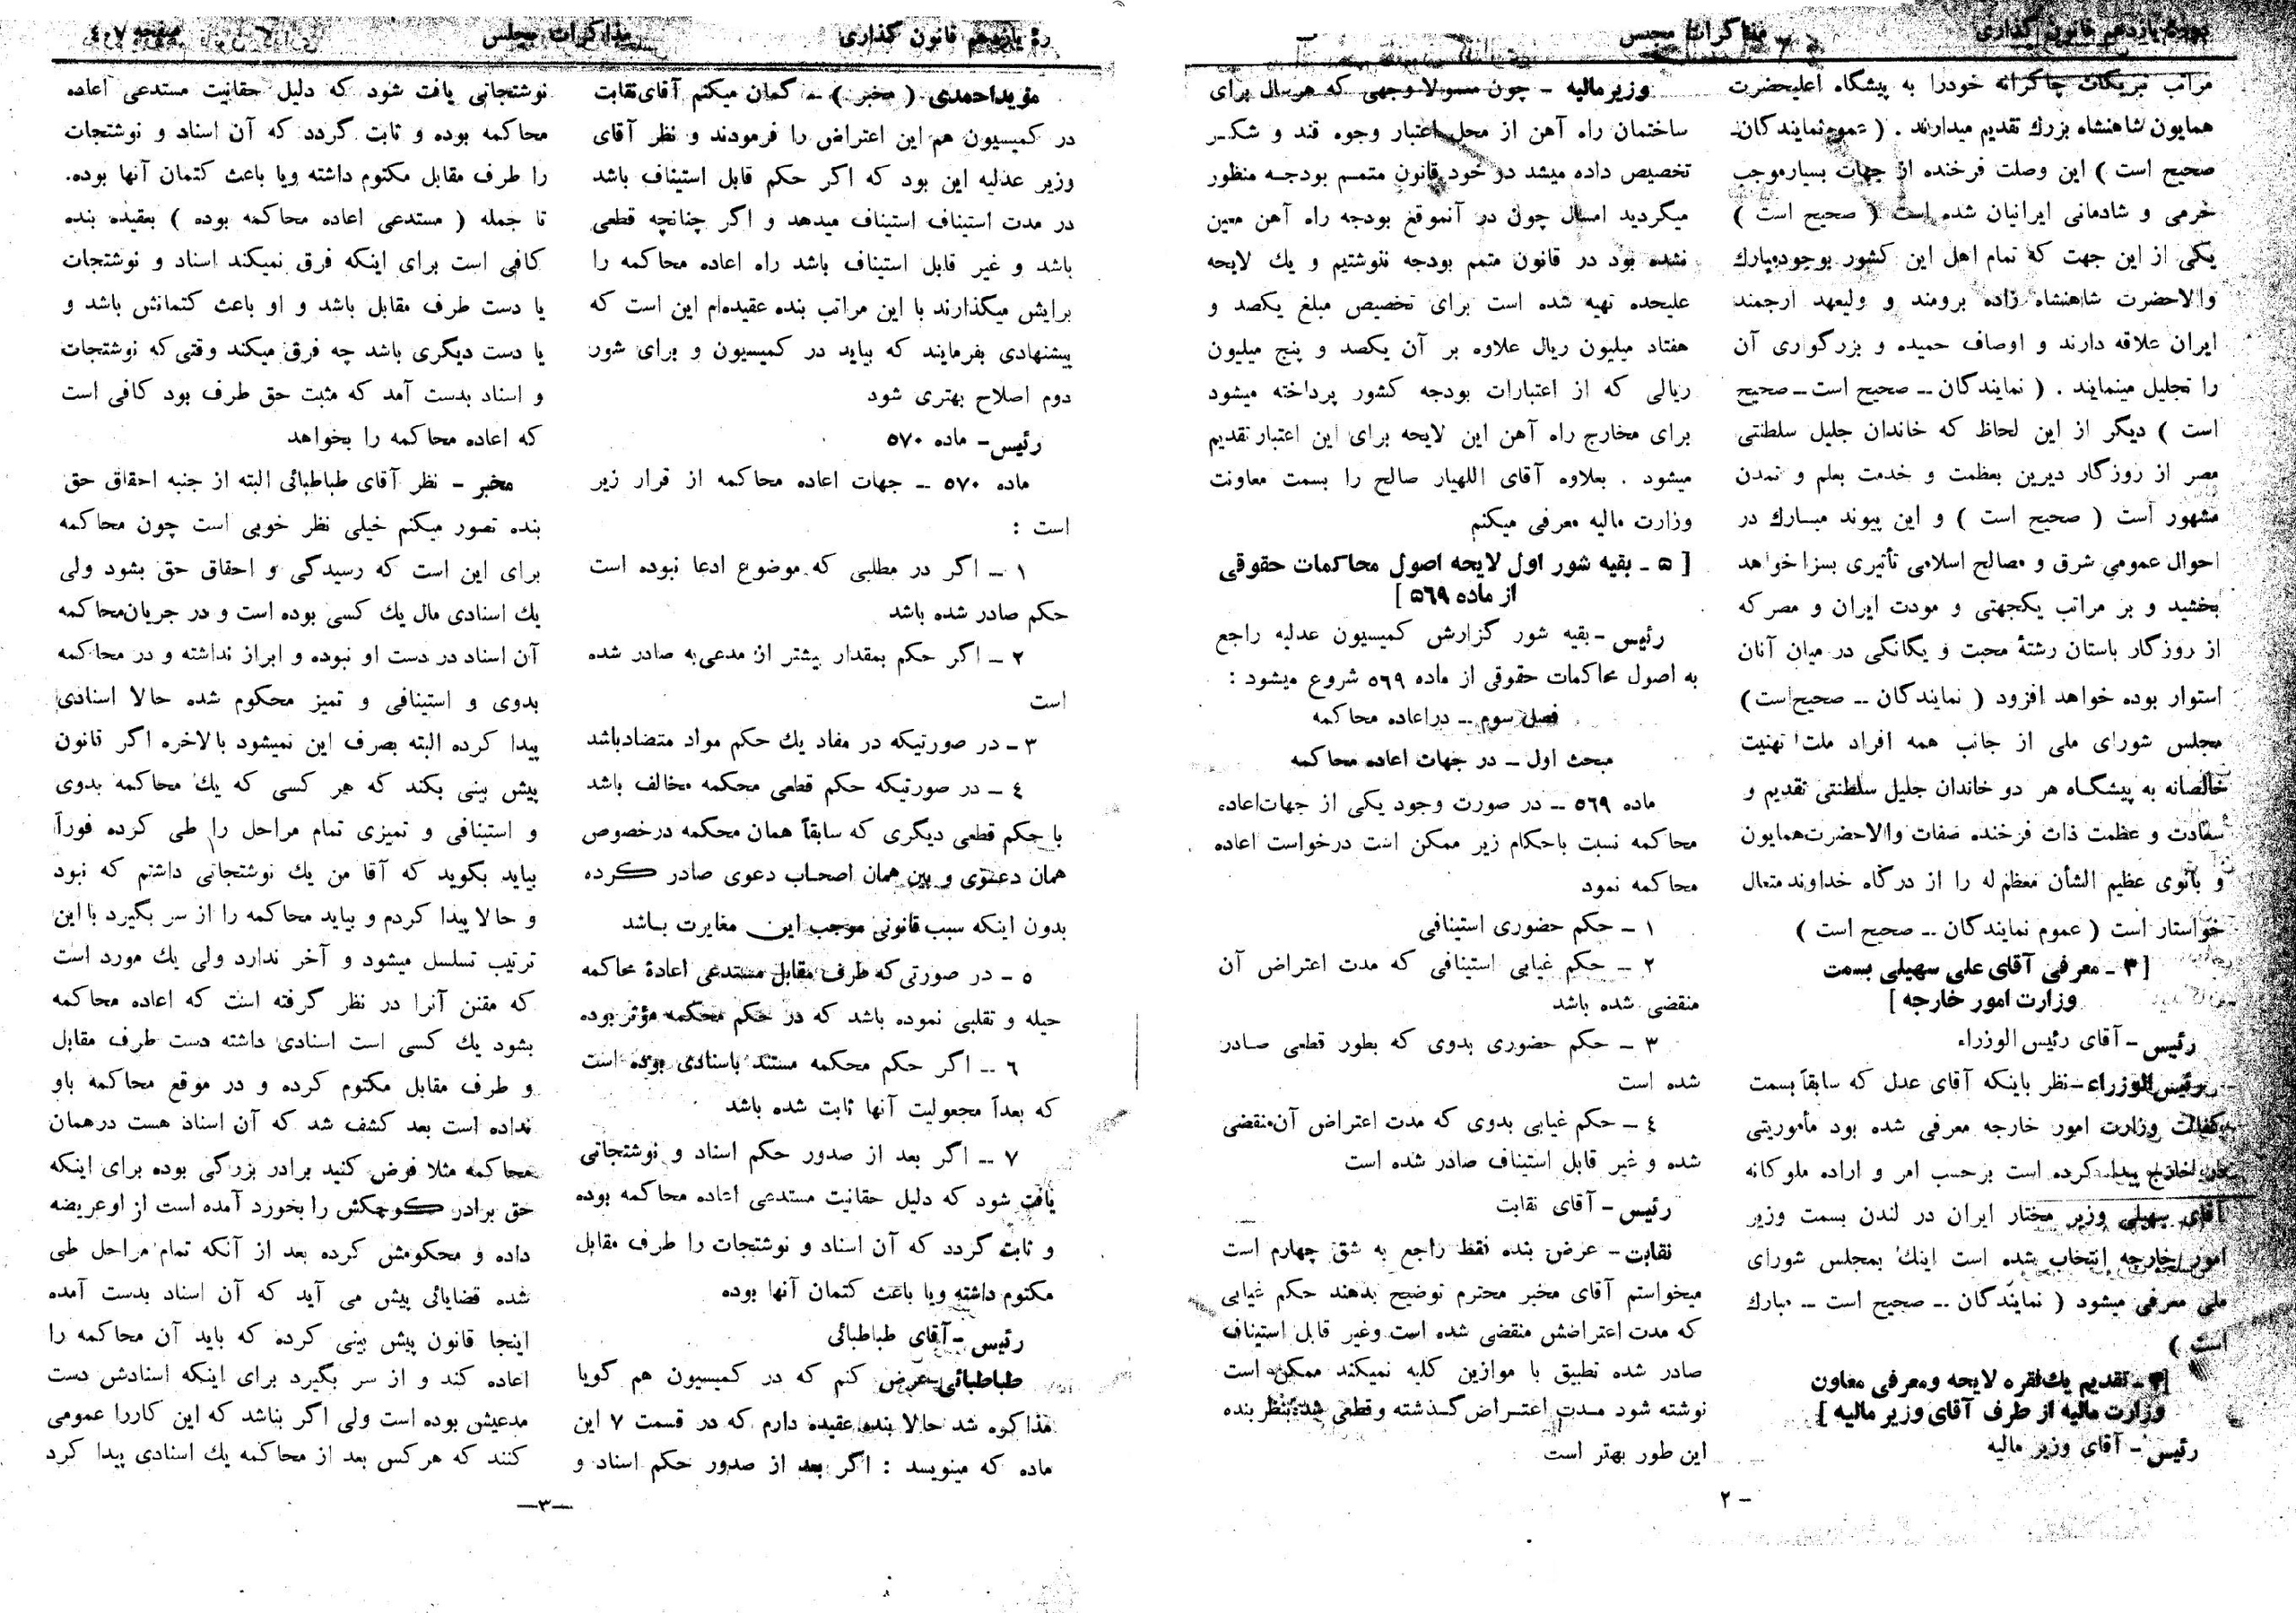 دورهٔ یازدهم قانون گذاری
مذاکرات مجلس
مراتب تبریکات چاکرانه خودرا به پیشگاه اعلیحضرت
همایون شاهنشاه بزرك تقدیم میدارند . ( عموم نمایندگان ـ
صحیح است ) این وصلت فرخنده از جهات بسیار موجب
خرمی و شادمانی ایرانیان شده است ( صحیح است )
یکی از این جهت که تمام اهل این کشور بوجود مبارك
والاحضرت شاهنشاه زاده برومند و ولیعهد ارجمند
ایران علاقه دارند و اوصاف حمیده و بزرگواری آن
را تجلیل مینمایند . ( نمایندگان ــ صحیح است ــ صحیح
است ) دیگر از این لحاظ که خاندان جلیل سلطنتی
مصر از روزگار دیرین بعظمت و خدمت بعلم و تمدن
مشهور است ( صحیح است ) و این پیوند مبـارك در
احوال عمومی شرق و مصالح اسلامی تأثیری بسزا خواهد
بخشید و بر مراتب یکجهتی و مودت ایران و مصر که
از روزگار باستان رشتهٔ محبت و یگانگی در میان آنان
استوار بوده خواهد افزود ( نمایندگان ــ صحیح است )
مجلس شورای ملی از جانب همه افراد ملت تهنیت
خالصانه به پیشگـاه هر دو خاندان جلیل سلطنتی تقدیم و
سعادت و عظمت ذات فرخنده صفات والاحضرت همایون
و بانوی عظیم الشأن معظم له را از درگاه خداوند متعال
خواستار است ( عموم نمایندگان ــ صحیح است )
[ ۳ ـ معرفی آقای علی سهیلی بسمت
وزارت امور خارجه ]
رئیس ـ آقای رئیس الوزراء
رئیس الوزراء ـ نظر باینکه آقای عدل که سابقاً بسمت
کفالت وزارت امور خارجه معرفی شده بود مأموریتی
در خارج پیدا کرده است برحسب امر و اراده ملوکانه
آقای سهیلی وزیر مختار ایران در لندن بسمت وزیر
امور خارجه انتخاب شده است اینك بمجلس شورای
ملی معرفی میشود ( نمایندگان ــ صحیح است ــ مبارك
است )
[ ۴ ـ تقدیم یك فقره لایحه و معرفی معاون
وزارت مالیه از طرف آقای وزیر مالیه ]
رئیس ـ آقای وزیر مالیه
وزیر مالیه ـ چون معمولا وجهی که هر سال برای
ساختمان راه آهن از محل اعتبار وجوه قند و شکـر
تخصیص داده میشد در خود قانون متمـم بودجـه منظور
میگردید امسال چون در آنموقع بودجه راه آهن معین
نشده بود در قانون متمم بودجه ننوشتیم و یك لایحه
علیحده تهیه شده است برای تخصیص مبلغ یکصد و
هفتاد میلیون ریال علاوه بر آن یکصد و پنج میلیون
ریالی که از اعتبارات بودجه کشور پرداخته میشود
برای مخارج راه آهن این لایحه برای این اعتبار تقدیم
میشود . بعلاوه آقای اللهیار صالح را بسمت معاونت
وزارت مالیه معرفی میکنم
[ ۵ ـ بقیه شور اول لایحه اصول محاکمات حقوقی
از ماده ۵۶۹ ]
رئیس ـ بقیه شور گزارش کمیسیون عدلیه راجع
به اصول محاکمات حقوقی از ماده ٥٦٩ شروع میشود :
فصل سوم ــ در اعاده محاکمه
مبحث اول ــ در جهات اعاده محاکمه
ماده ٥٦٩ ــ در صورت وجود یکی از جهات اعاده
محاکمه نسبت باحکام زیر ممکن است درخواست اعاده
محاکمه نمود
١ ــ حکم حضوری استینافی
٢ ــ حکم غیابی استینافی که مدت اعتراض آن
منقضی شده باشد
٣ ــ حکم حضوری بدوی که بطور قطعی صـادر
شده است
٤ ــ حکم غیابی بدوی که مدت اعتراض آن منقضی
شده و غیر قابل استیناف صادر شده است
رئیس ـ آقای نقابت
نقابت ـ عرض بنده فقط راجع به شق چهارم است
میخواستم آقای مخبر محترم توضیح بدهند حکم غیابی
که مدت اعتراضش منقضی شده است وغیر قابل استیناف
صادر شده تطبیق با موازین کلیه نمیکند ممکن است
نوشته شود مـدت اعتـراض گـذشته وقطعی شده بنظر بنده
این طور بهتر است
ـ ٢
رهٔ یازدهم قانون گذاری
مذاکرات مجلس
صفحه ٤٠٧
مؤیداحمدی ( مخبر ) ـ گمان میکنم آقای نقابت
در کمیسیون هم این اعتراض را فرمودند و نظر آقای
وزیر عدلیه این بود که اگر حکم قابل استیناف باشد
در مدت استیناف استیناف میدهد و اگر چنانچه قطعی
باشد و غیر قابل استیناف باشد راه اعاده محاکمه را
برایش میگذارند با این مراتب بنده عقیده‌ام این است که
پیشنهادی بفرمایند که بیاید در کمیسیون و برای شور
دوم اصلاح بهتری شود
رئیس ـ ماده ٥٧٠
ماده ٥٧٠ ــ جهات اعاده محاکمه از قرار زیر
است :
١ ــ اگر در مطلبی که موضوع ادعا نبوده است
حکم صادر شده باشد
٢ ــ اگر حکم بمقدار بیشتر از مدعی به صادر شده
است
٣ ــ در صورتیکه در مفاد یك حکم مواد متضاد باشد
٤ ــ در صورتیکه حکم قطعی محکمه مخالف باشد
با حکم قطعی دیگری که سابقاً همان محکمه درخصوص
همان دعوی و بین همان اصحـاب دعوی صادر کرده
بدون اینکه سبب قانونی موجب این مغایرت بـاشد
٥ ـ در صورتی که طرف مقابل مستدعی اعادهٔ محاکمه
حیله و تقلبی نموده باشد که در حکم محکمه مؤثر بوده
٦ ــ اگر حکم محکمه مستند باسنادی بوده است
که بعداً مجعولیت آنها ثابت شده باشد
٧ ــ اگر بعد از صدور حکم اسناد و نوشتجاتی
یافت شود که دلیل حقانیت مستدعی اعاده محاکمه بوده
و ثابت گردد که آن اسناد و نوشتجات را طرف مقابل
مکتوم داشته ویا باعث کتمان آنها بوده
رئیس ـ آقای طباطبائی
طباطبائی ـ عرض کنم که در کمیسیون هم گویا
مذاکره شد حالا بنده عقیده دارم که در قسمت ٧ این
ماده که مینویسد : اگر بعد از صدور حکم اسناد و
نوشتجاتی یافت شود که دلیل حقانیت مستدعی اعاده
محاکمه بوده و ثابت گردد که آن اسناد و نوشتجات
را طرف مقابل مکتوم داشته ویا باعث کتمان آنها بوده.
تا جمله ( مستدعی اعاده محاکمه بوده ) بعقیده بنده
کافی است برای اینکه فرق نمیکند اسناد و نوشتجات
یا دست طرف مقابل باشد و او باعث کتمانش باشد و
یا دست دیگری باشد چه فرق میکند وقتی که نوشتجات
و اسناد بدست آمد که مثبت حق طرف بود کافی است
که اعاده محاکمه را بخواهد
مخبر ـ نظر آقای طباطبائی البته از جنبه احقاق حق
بنده تصور میکنم خیلی نظر خوبی است چون محاکمه
برای این است که رسیدگی و احقاق حق بشود ولی
یك اسنادی مال یك کسی بوده است و در جریان محاکمه
آن اسناد در دست او نبوده و ابراز نداشته و در محاکمه
بدوی و استینافی و تمیز محکوم شده حالا اسنادی
پیدا کرده البته بصرف این نمیشود بالاخره اگر قانون
پیش بینی بکند که هر کسی که یك محاکمه بدوی
و استینافی و تمیزی تمام مراحل را طی کرده فوراً
بیاید بگوید که آقا من یك نوشتجاتی داشتم که نبود
و حالا پیدا کردم و بیاید محاکمه را از سر بگیرد با این
ترتیب تسلسل میشود و آخر ندارد ولی یك مورد است
که مقنن آنرا در نظر گرفته است که اعاده محاکمه
بشود یك کسی است اسنادی داشته دست طرف مقابل
و طرف مقابل مکتوم کرده و در موقع محاکمه باو
نداده است بعد کشف شد که آن اسناد هست درهمان
محاکمه مثلا فرض کنید برادر بزرگی بوده برای اینکه
حق برادر کوچکش را بخورد آمده است از او عریضه
داده و محکومش کرده بعد از آنکه تمام مراحل طی
شده قضایائی پیش می آید که آن اسناد بدست آمده
اینجا قانون پیش بینی کرده که باید آن محاکمه را
اعاده کند و از سر بگیرد برای اینکه اسنادش دست
مدعیش بوده است ولی اگر بناشد که این کاررا عمومی
کنند که هر کس بعد از محاکمه یك اسنادی پیدا کرد
—٣—